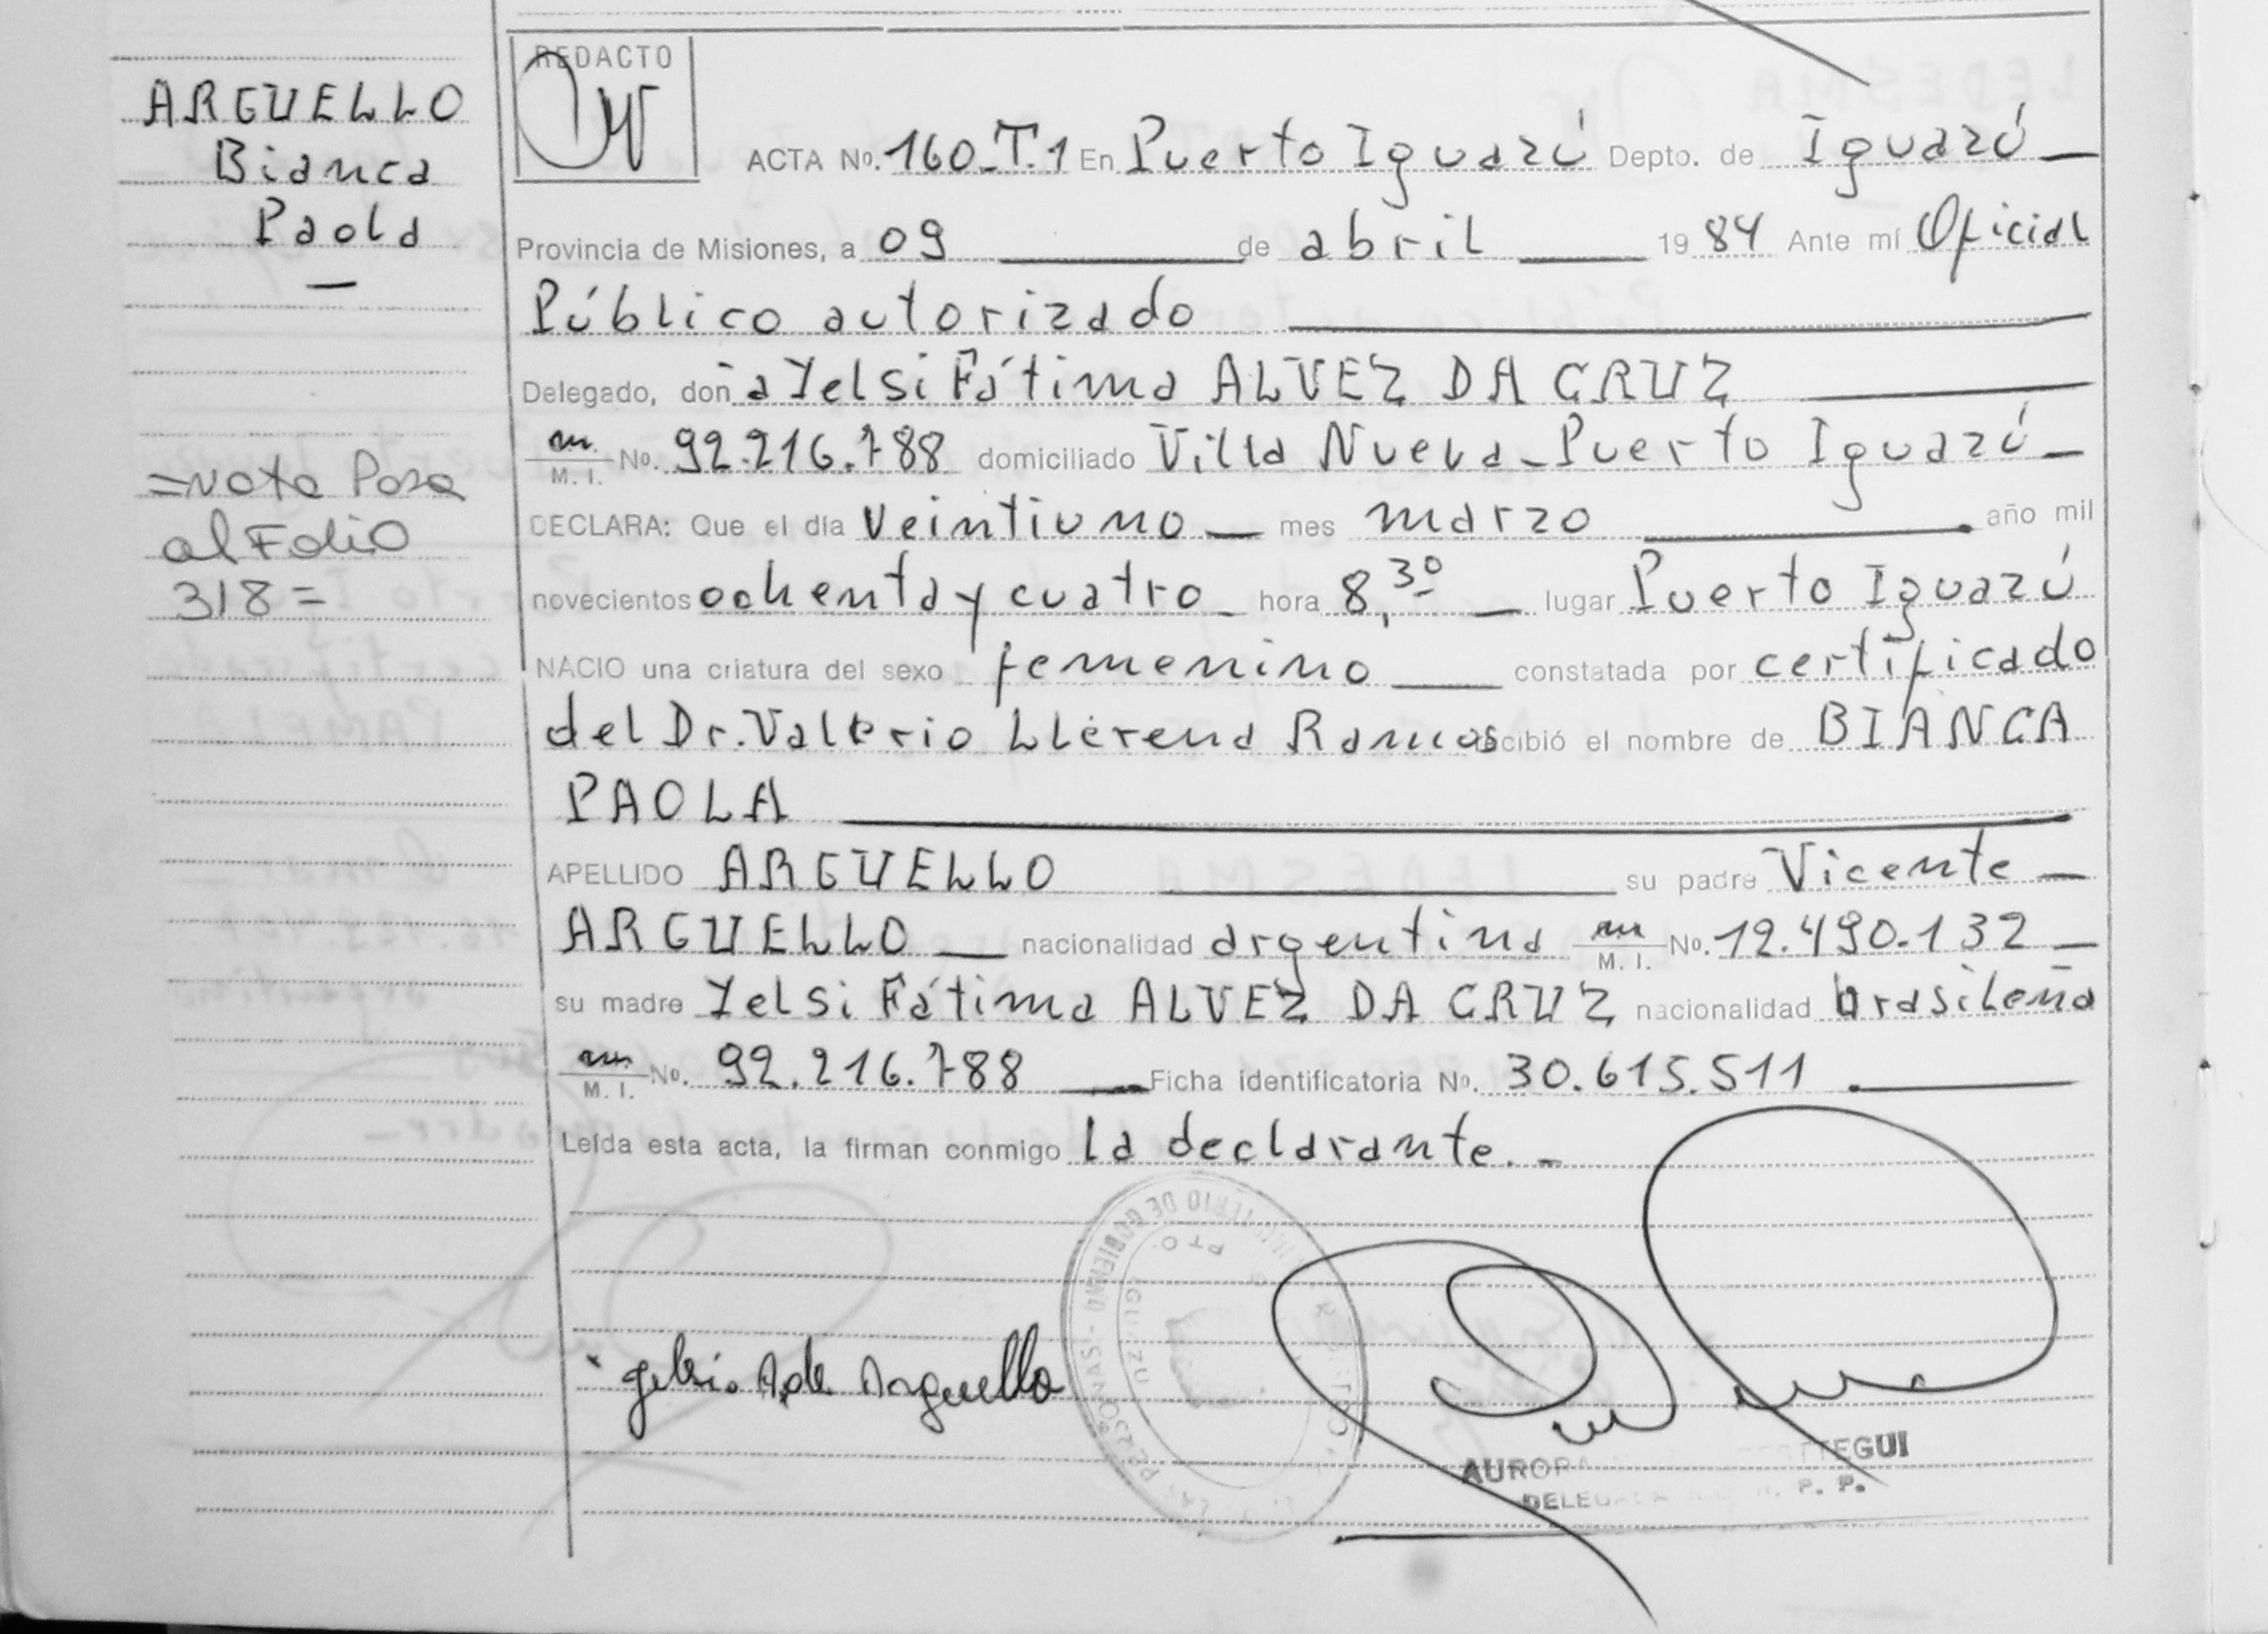 ARGUELLO
Bianca
Paola
=Nota Pasa
al Folio
318=
REDACTO
ACTA No. 160_T.1 En Puerto Iguazú Depto. de Iguazú
Provincia de Misiones, a 09 de abril 19 84 Ante mí Oficial
Público autorizado
Delegado, don̄a Yelsi Fátima ALVEZ DA CRUZ
M. I. No. 92.216.788 domiciliado Villa Nueva - Puerto Iguazú
DECLARA: Que el día veintiuno mes marzo año mil
novecientos ochenta y cuatro hora 8,30 lugar Puerto Iguazú
NACIO una criatura del sexo femenino constatada por certificado
del Dr. Valerio Llerena Ramos cibió el nombre de BIANCA
PAOLA
APELLIDO ARGUELLO su padre Vicente
ARGUELLO nacionalidad argentina M. I. No. 12.490.132
su madre Yelsi Fátima ALVEZ DA CRUZ nacionalidad brasileña
M. I. No. 92.216.788 Ficha identificatoria No. 30.615.511
Leída esta acta, la firman conmigo la declarante.-
Arguello
PTO.
AURORA
DELEGADA